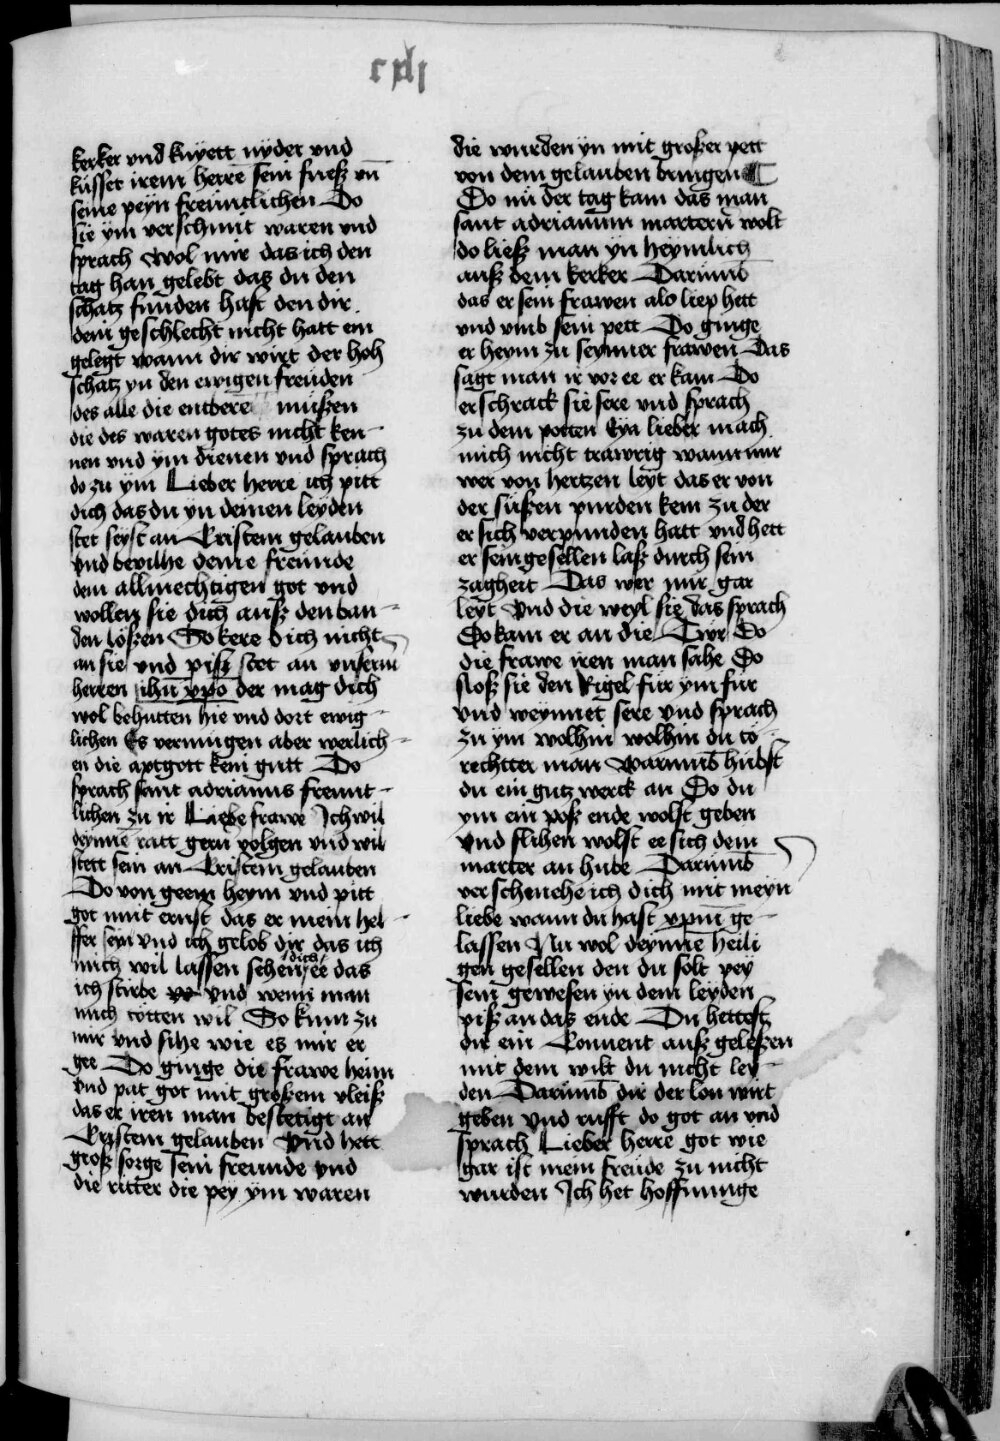 cxlj
kerker vnd knyett nyder vnd
küsset irem herre sein fuesz vn̄
seine peyn freuntlichen Do
sie ym verschmit waren vnd
sprach Wol mir das ich den
tag han gelebt das du den
schatz funden hast den dir
dein geschlecht nicht hatt ein
gelegt wann dir wirt der hoh
schatz yn den ewigen freuden
des alle die entbere müßen
die des waren gotes nicht ken-
nen vnd ym dienen vnd sprach
do zu ym Lieber herre ich pitt
dich das du yn deinen leyden
stet seyst an Cristem gelauben
vnd bevilhe deine freunde
dem allmechtigen got vnd
wollen sie dich ausz den ban-
den lößen So kere dich nicht
an sie vnd pisz stet an vnserm
herren ihū xp̄o der mag dich
wol behutten hie vnd dort ewig-
lichen Es vermugen aber werlich-
en die aptgott kein gutt Do
sprach sant adrianus freunt-
lichen zu ir Liebe frawe Ich wil
deynnē ratt gern volgen vnd wil
stett sein an Cristem gelauben
Do von geem heym vnd pitt
got mit ernst das er mein hel-
ffer sey vnd ich gelob dir das ich
mich wil lassen sehen dich ee das
ich stirbe vnd wenn man
mich tötten wil So kum zu
mir vnd sihe wie es mir er
gee Do ginge die frawe heim
vnd pat got mit großem vleisz
das er iren man bestetigt an
Cristem gelauben Vnd hett
grosz sorge sein freunde vnd
die ritter die pey ym waren
die wurden yn mit großer pett
von dem gelauben bringen ¶
Do nü der tag kam das man
sant adrianum martern wolt
do liesz man yn heymlich
ausz dem kerker Darumb
das er sein frawen also liep hett
vnd vmb sein pett Do ginge
er heym zu seynner frawen Das
sagt man ir vor ee er kam Do
erschrack sie sere vnd sprach
zu dem potten Eya lieber mach
mich nicht trawrig wann mir
wer von hertzen leyt das er von
der süßen purden kem zu der
er sich verpunden hatt vnd hett
er sein gesellen lasz durch sein
zagheit Das wer mir gar
leyt Vnd die weyl sie das sprach
Do kam er an die Tür Do
die frawe iren man sahe Do
stosz sie den Rigel für ym für
vnd weynnet sere vnd sprach
zu ym wolhin wolhin du tö-
rechtter man Warumb hubst
du ein gutz werck an Do du
ym ein pösz ende wolst geben
vnd flihen wolst ee sich dem
marter an hube Darumb
verschmehe ich dich mit meyn
liebe wann du hast xpm̄ ge-
lassen Nu wol deynnē heili
gen gesellen den du solt pey
sein gewesen yn dem leyden
pisz an das ende Du hettest
dir ein Conuent ausz geleßen
mit dem wilt du nicht ley-
den Darumb dir der lon wirt
geben vnd rufft do got an vnd
sprach Lieber herre got wie
gar ist mein freude zu nicht
wurden Ich het hoffnunge